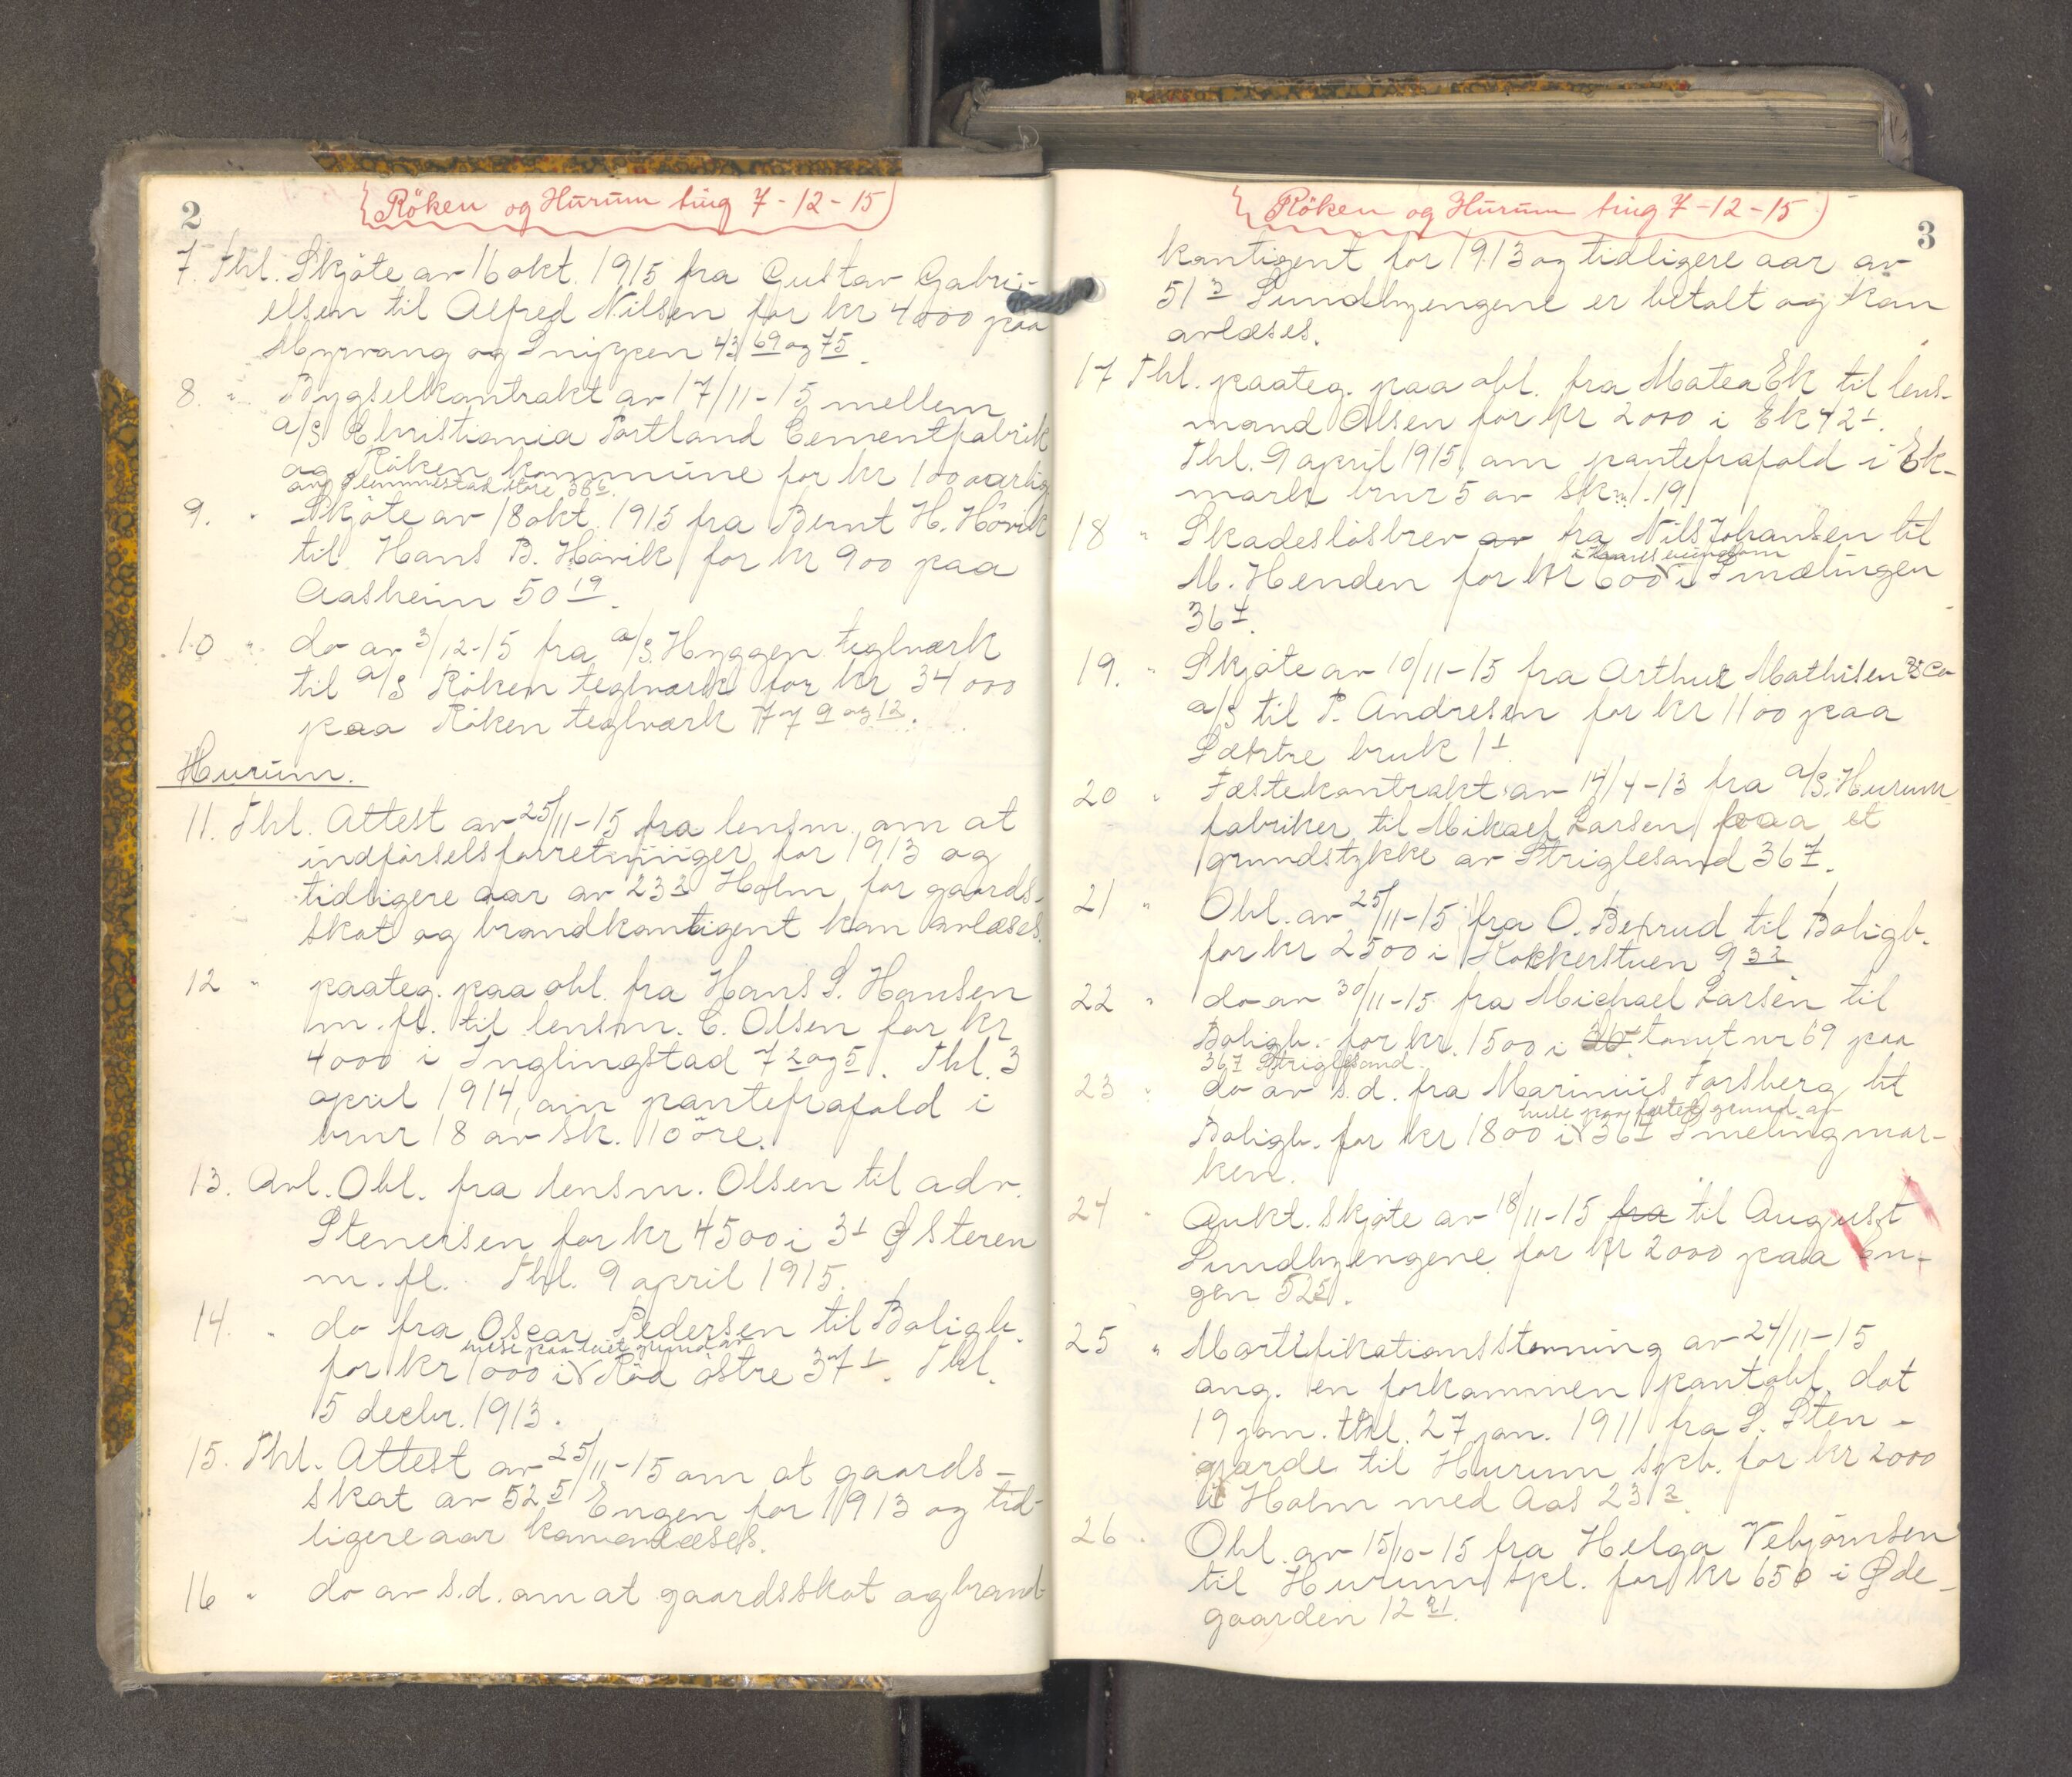 2
Röken og Hurum ting 7-12-15
7. Thl. Skjöte av 16 okt. 1915 fra Gustav Gabri-
elsen til Alfred Nilsen for kr 4000 paa
Myrvang og Snippen 43 69 og 75.
8. " Bygselkontrakt av 17/11-15 mellem
a/s Christiania Portland Cementfabrik
og Röken kommune for kr 100 aarlig
ang. Slemmestad store 36 6.
9. " Skjöte av 18 okt. 1915 fra Bernt H. Hövik
til Hans B. Hövik for kr 900 paa
Aasheim 50 19.
10 " do av 3/12-15 fra a/s. Hyggen teglværk
til a/s Röken teglværk for kr 34 000
paa Röken teglværk 77 9 og 12.
Hurum.
11. Thl. Attest av 25/11-15 fra lensm. om at
indförselsforretninger for 1913 og
tidligere aar av 23 2 Holm for gaards-
skat og brandkontigent kan avlæses.
12 " paateg. paa obl. fra Hans S. Hansen
m. fl. til lensm. C. Olsen for kr
4000 i Inglingstad 7 2 og 5. Thl. 3
april 1914, om pantefrafald i
bnr 18 av sk. 10 öre.
13. Avl. Obl. fra lensm. Olsen til adv.
Stenersen for kr 4500 i 3 1 Østeren
m. fl. Thl. 9 april 1915.
14. " do fra Oscar Pedersen til Boligb.
huse paa leiet grund av
for kr 1000 i V Röd östre 37 1. Thl.
5 decbr. 1913.
15. Thl. Attest av 25/11-15 om at gaards-
skat av 52 5 Engen for 1913 og tid-
ligere aar kan avlæses.
16 " do av s.d. om at gaardsskat og brand-
3
Röken og Hurum ting 7-12-15
kontigent for 1913 og tidligere aar av
51 3 Sundbyengene er betalt og kan
avlæses.
17 Thl. paateg. paa obl. fra Matea Ek til lens-
mand Olsen for kr 2000 i Ek 42 1.
Thl. 9 april 1915, om pantefrafald i Ek-
mark bnr 5 av sk m 1.19
18 " Skadeslösbrev av fra Nils Johansen til
M. Henden for kr 600 V i Smælingen
36 1.
19. " Skjöte av 10/11-15 fra Arthur Mathisen & Co
a/s til P. Andresen for kr 1100 paa
Sætre bruk 1 1
20 " Festekontrakt av 14/4-13 fra a/s. Hurum
fabriker til Mikael Larsen paa et
grundstykke av Striglesand 36 7.
21 " Obl. av 25/11-15 fra O. Betrud til Boligb.
for kr 2500 i Kokkerstuen 9 32
22 " do av 30/11-15 fra Michael Larsen til
Boligb. for kr. 1500 i 36 tomt nr 69 paa
36 7 Striglesand.
23 " do av s.d. fra Marinius Forsberg til
huse paa festet grund av
Boligb. for kr 1800 i V 36 1 Smelingmar-
ken.
24 " Aukt. skjöte av 18/11-15 fra til August
Sundbyengene for kr 2000 paa En-
gen 52 5.
25 " Mortifikationsstevning av 24/11-15
ang. en forkommen pantobl. dat
19 jan. thl. 27 jan. 1911 fra S. Sten-
gjærde til Hurum spb. for kr 2000
i Holm med Aas 23 2.
26 " Obl. av 15/10-15 fra Helga Vebjörnsen
til Hurum spk. for kr 650 i Øde-
gaarden 12 21.